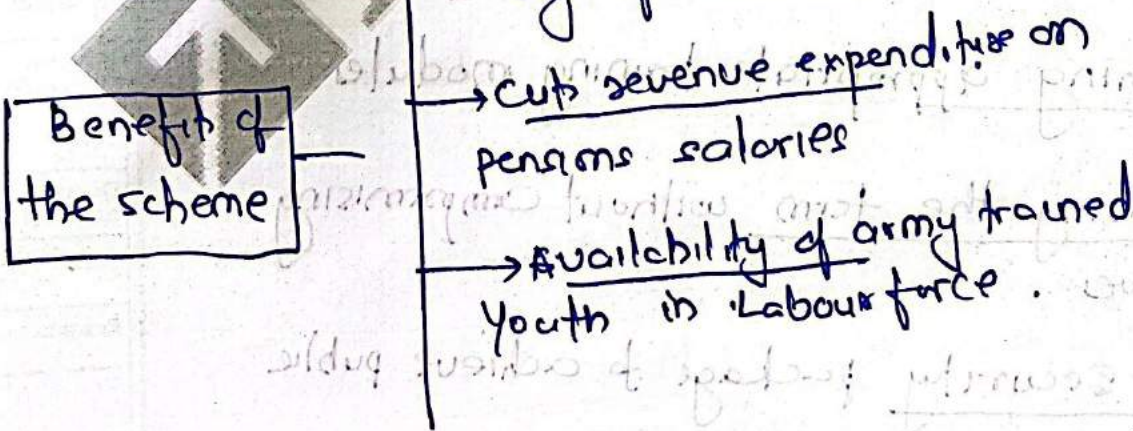 Benefits of
the scheme
→ cuts revenue expenditure on
pensions salaries
→ Availability of army trained
Youth in Labour force.